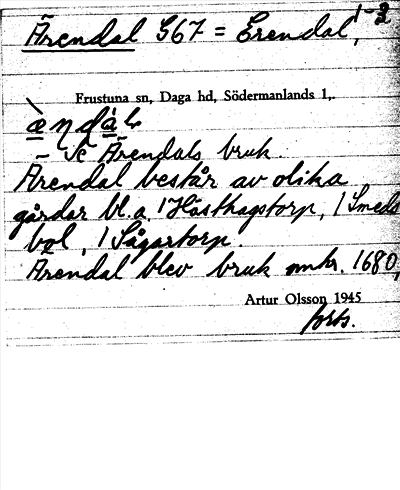 Ärendal G67 = Erendal, 1-2
Frustuna sn, Daga hd, Södermanlands l,.
Se Ärendals bruk.
Ärendal består av olika
gårdar bl.a. 1 Hästhagstorp, 1 Smeds
bol, 1 Sågartorp.
Ärendal blev bruk omkr. 1680,
Artur Olsson 1945
forts.